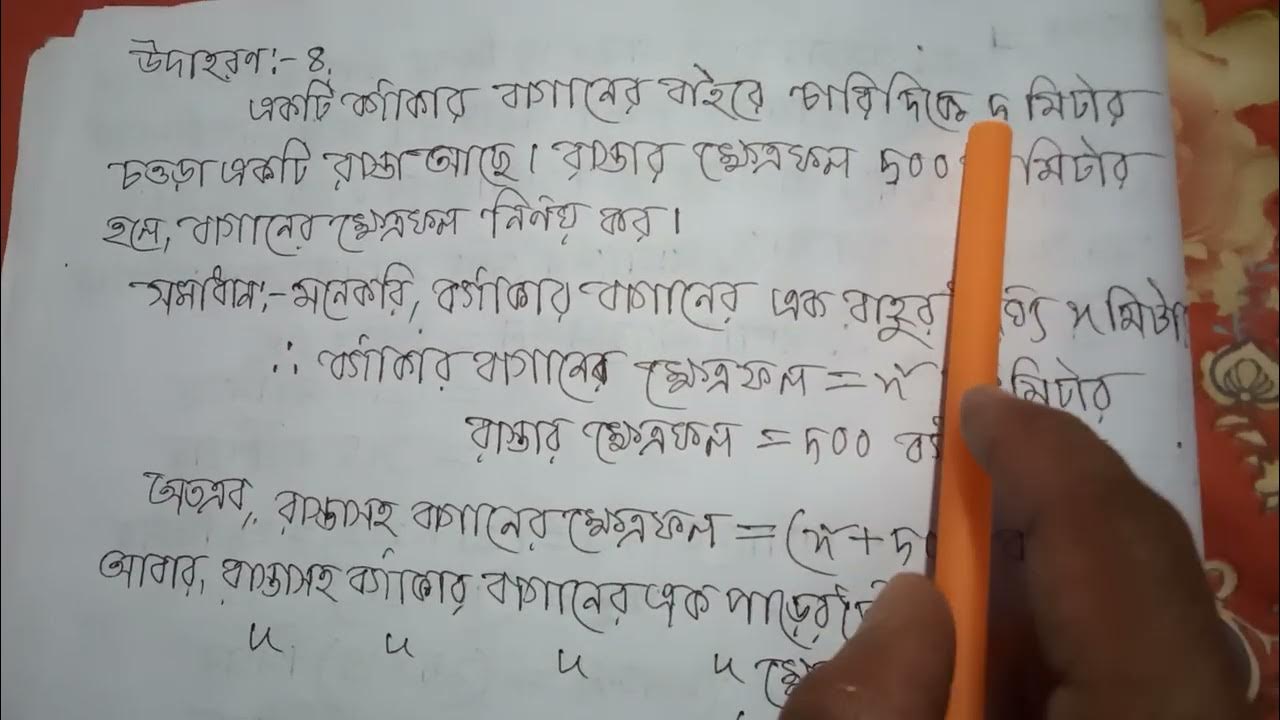 উদাহরণ:- ৪.
একটি বর্গাকার বাগানের বাইরে চারিদিকে ৫ মিটার
চওড়া একটি রাস্তা আছে। রাস্তার ক্ষেত্রফল ৫০০ মিটার
হলে, বাগানের ক্ষেত্রফল নির্ণয় কর।
সমাধান:- মনেকরি, বর্গাকার বাগানের এক বাহুর x মিটা
∴ বর্গাকার বাগানের ক্ষেত্রফল = x² মিটার
রাস্তার ক্ষেত্রফল = ৫০০ বর্গ
অতএব, রাস্তাসহ বাগানের ক্ষেত্রফল = (x² + ৫০
আবার, রাস্তাসহ বর্গাকার বাগানের এক পাড়ের
〃 〃 〃 〃 ক্ষে